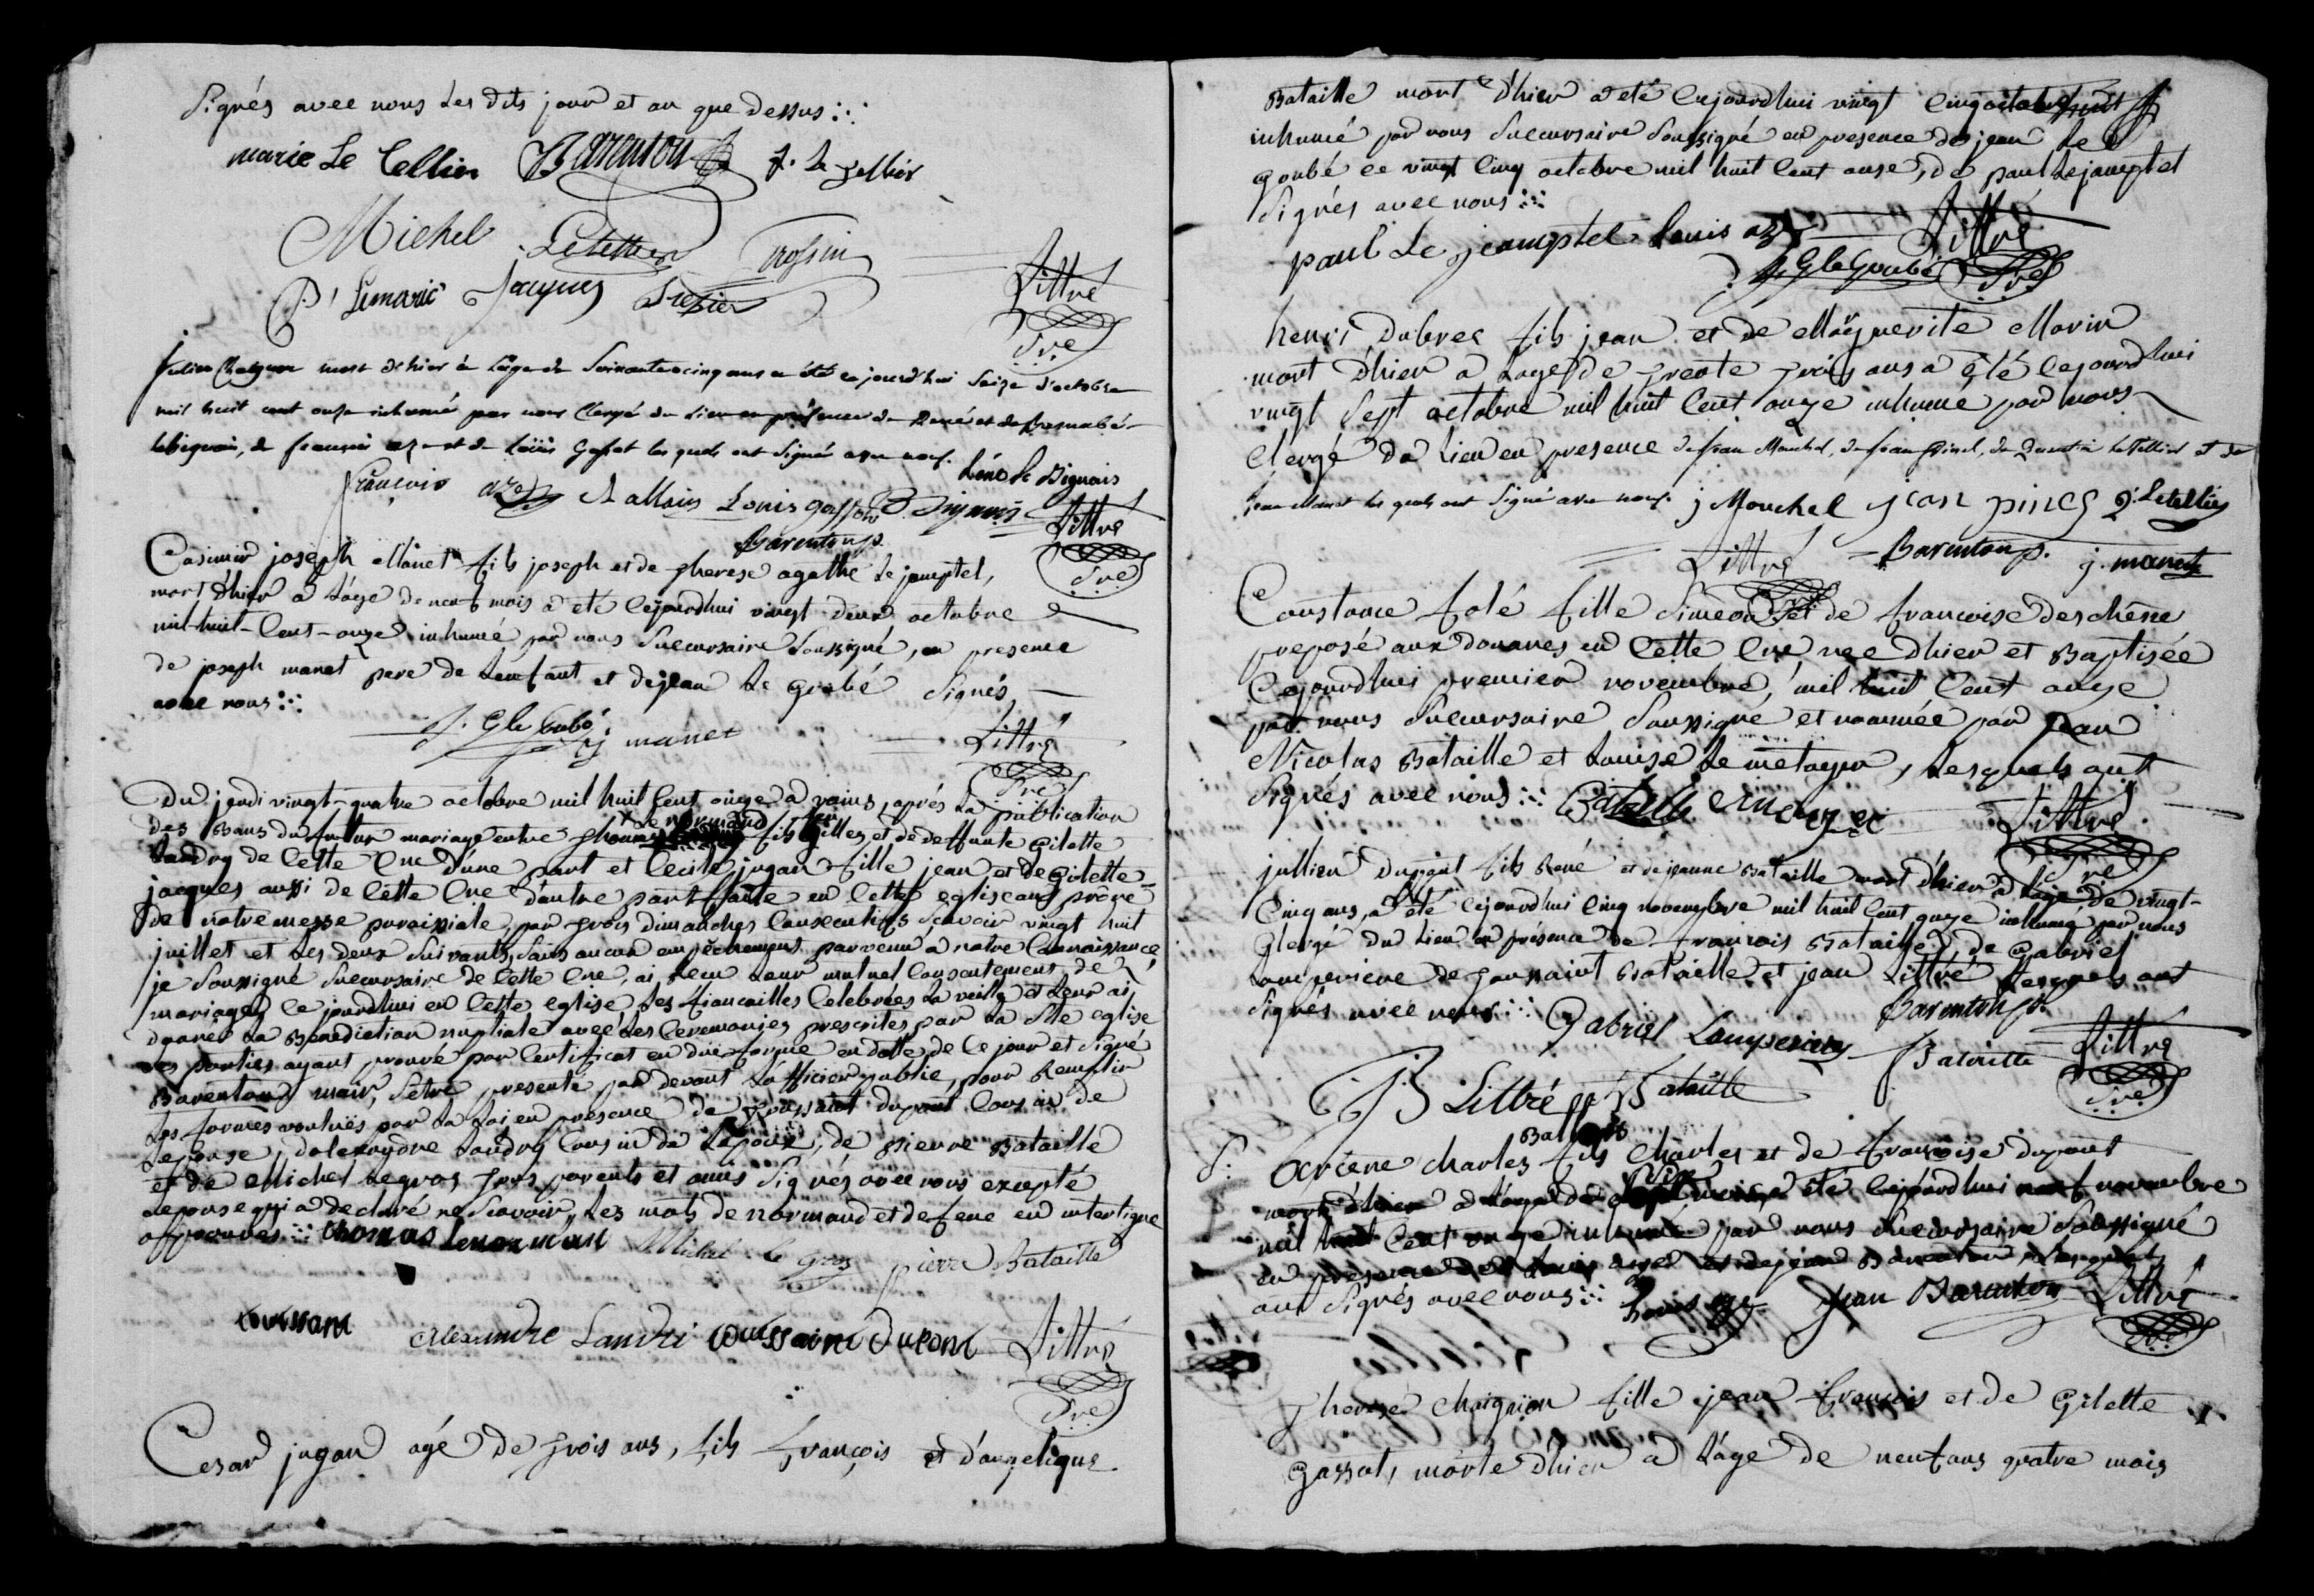 Signés avec nous les dits jour et an que dessus
marie Le tellier Barenton J. le tellier
Michel Letellier trossin
P. Lemarié Jacques Littré
Sre
mort d'hier à l'âge de Soixante cinq ans a été ce jourd'hui Seize d'octobre
mil huit cent onze inhumé par nous Clergé du Lieu en présence de René et de Barnabé
lebignais, de francois aze et de Louis Gassot les quels ont Signés avec nous. René le Bignais
francois aze Louis gassot B Bignais Littré
Barenton p. Sre
Casimir joseph Manet fils joseph et de therese agathe le jamptel,
mort d'hier a l'age de neuf mois a eté cejourdhui vingt deux octobre
mil-huit-cent-onze inhumé par nous Succursaire Soussigné, en presence
de joseph manet pere de l'enfant et de jean le goubé Signés
avec nous
J. G le Goubé j manet Littré
Sre
Du jeudi vingt-quatre octobre mil huit cent onze a vains, aprés la publication
le normand feu
des Bans du futur mariage entre thomas fils Gilles, et de deffunte Gilette
Landry de cette Cne d'une part et Cecile jugan fille jean et de Gilette
jacques aussi de cette Cne d'autre part faite en cette eglise au prône
de notre messe paroissiale, par trois dimanches consecutifs Scavoir vingt huit
juillet et les deux Suivants, Sans aucun empechement parvenu a notre Connaissance
je Soussigné Succursaire de cette Cne, ai recu leur mutuel Consentement de
mariage, ce jourdhui en cette eglise, les fiancailles Celebrées la veille et leur ai
donné la Benediction nuptiale avec les Ceremonies prescrites par la Ste eglise
les parties ayant prouvé par Certificat en due forme en datte de ce jour et signé
Barenton mair, S'etre presenté par devant l'officier public, pour Remplir
les formes voulues par la Loi en presence de toussaint dupont Cousin de
l'epouse, d'alexandre Landry Cousin de l'epoux, de pierre Bataille
et de Michel legros tous parents et amis Signés avec nous excepté
l'epouse qui a declaré ne Scavoir, les mots le normand et de feue en interligne
approuvés thomas lenormand Michel le gros pierre Bataille
toussant
Alexandre Landri toussaint dupont Littré
Sre
Cesar jugan agé de trois ans, fils François et d'angelique
Bataille mort d'hier a eté cejourdhui vingt cinq octobre
inhumé par nous Succursaire Soussigné en presence de jean le
goubé ce vingt cinq octobre mil huit cent onze, de paul le jamptel
Signés avec nous
paul Le jamptel Louis aze Littré
J G le Goubé Sre
henri Dubrec fils jean et de Marguerite Morin
mort D'hier a l'age de trente trois ans a été cejourdhui
vingt Sept octobre mil huit cent onze inhumé par nous
Clergé du Lieu en presence de jean Mouchel, de jean pinel, de Quentin Letellier et de
jean Manet les quels ont Signé avec nous. j Mouchel jean pinel Q. Letellier
Littré Barenton p. j. manet
Sre
Constance folé fille Simeon et de francoise deschêne
preposé aux douanes en Cette Cne née d'hier et Baptisée
Cejourdhui premier novembre, mil huit Cent onze
par nous Succursaire Soussigné et nommée par Jean
Nicolas Bataille et Louise le métayer, lesquels ont
Signés avec nous Bataille Littré
Sre
jullien Dupont fils René et de jeanne Bataille mort d'hier a l'age de vingt-
Cinq ans, a été cejourdhui cinq novembre mil huit cent onze inhumé par nous
Clergé du Lieu en présence de francois Bataille, de Gabriel
Lamperiere de toussaint Bataille et jean Littré lesquels ont
Signés avec nous Gabriel Lamperiere Barenton p.
B Littré Bataille Bataille Littré
Sre
S. arcene charles fils Charles et de francoise dupont
mort d'hier a l'age de a été cejourdhui neuf novembre
mil huit Cent onze inhumé par nous Succursaire Soussigné
en presence de Louis aze et de jean Barenton lesquels
ont Signés avec nous Louis aze Jean Barenton Littré
Sre
therese chaignon fille jean francois et de Gilette
Gassot, morte d'hier a l'age de neuf ans quatre mois